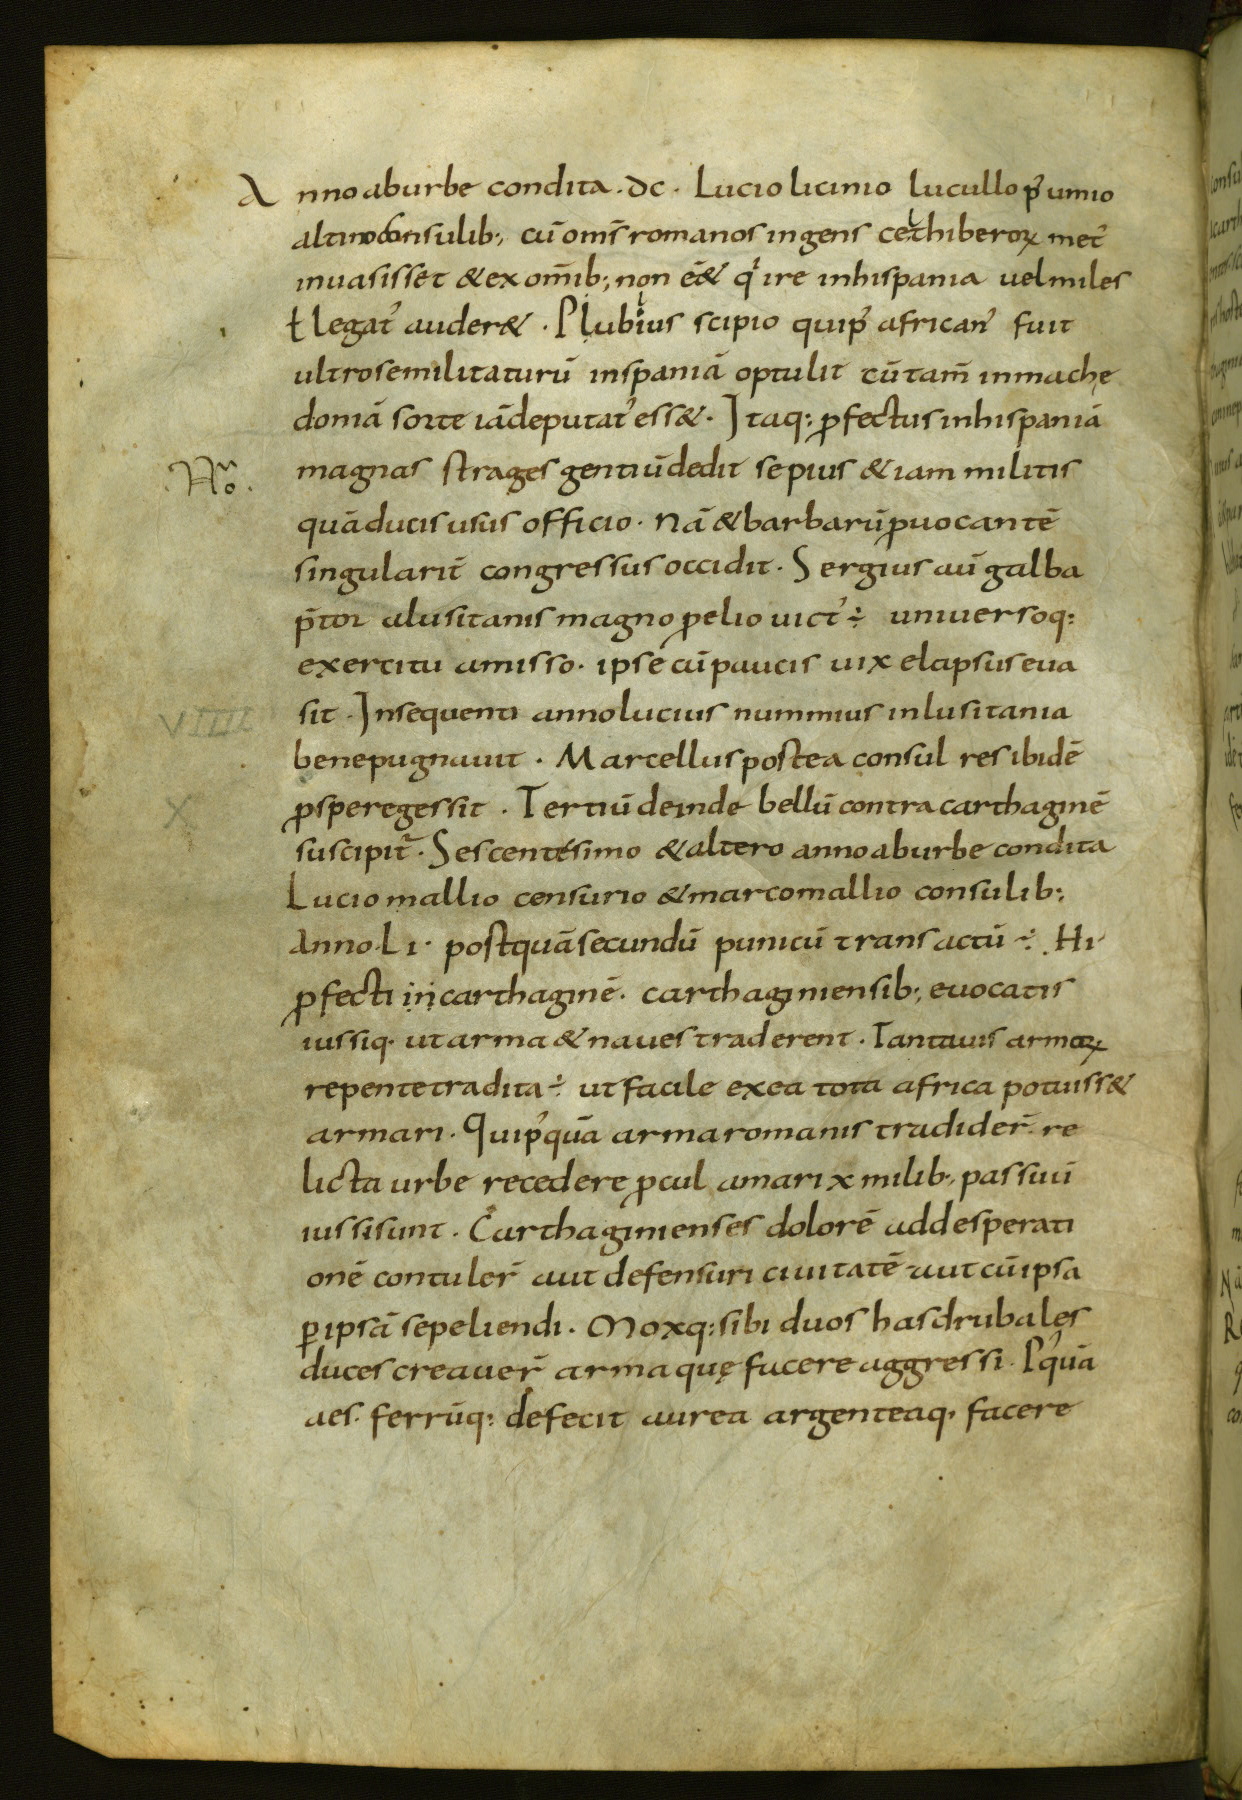 Anno ab urbe condita · dc · Lucio licinio lucullo p᷒umio
altino consulib; cū om̄s romanos ingens cethiberoꝝ met᷒
inuasisset & ex om̄ib; non ēē& qͥ ire inhispania uel miles
ƚ legat᷒ auder& · Plubius scipio quip᷒ african᷒ fuit
ultro se militaturū inspaniā optulit cū tam̄ in mache
doniā sorte iā deputat᷒ ess& · Itaq: ꝓfectus inhispaniā
magnas strages gentiū dedit sepius & iam militis
quā ducis usus officio · Nā & barbarū ꝓuocantē
singularit̄ congressus occidit · Sergius aū galba
p̄tor alusitanis magno p̱elio uict᷒ ÷ uniuersoq:
exercitu amisso · ipse cū paucis uix elapsus eua
sit · Insequenti anno lucius nummius inlusitania
bene pugnauit · Marcellus postea consul res ibidē
ꝓspere gessit · Tertiū deinde bellū contra carthaginē
suscipit᷒ · Sescentesimo & altero anno ab urbe condita
Lucio mallio censurio & marco mallio consulib;
Anno · Li · postquā secundū punicū transactū ÷ Hi
ꝓfecti in carthaginē · carthaginiensib; euocatis
iussiq· ut arma & naues traderent · Tanta uis armoꝝ
repente tradita ÷ ut facile ex ea tota africa potuiss&
armari · Quip᷒quā arma romanis tradider̄ · re
licta urbe recedere ꝓcul amari x milib; passuū
iussi sunt · Carthaginienses dolorē ad desperati
onē contuler̄ aut defensuri ciuitatē aut cū ipsa
ꝑ ipsā sepeliendi · Moxq: sibi duos hasdrubales
duces creauer̄ arma quę facere aggressi · P᷒quā
aes · ferrūq: defecit aurea argenteaq· facere
VIIII
X